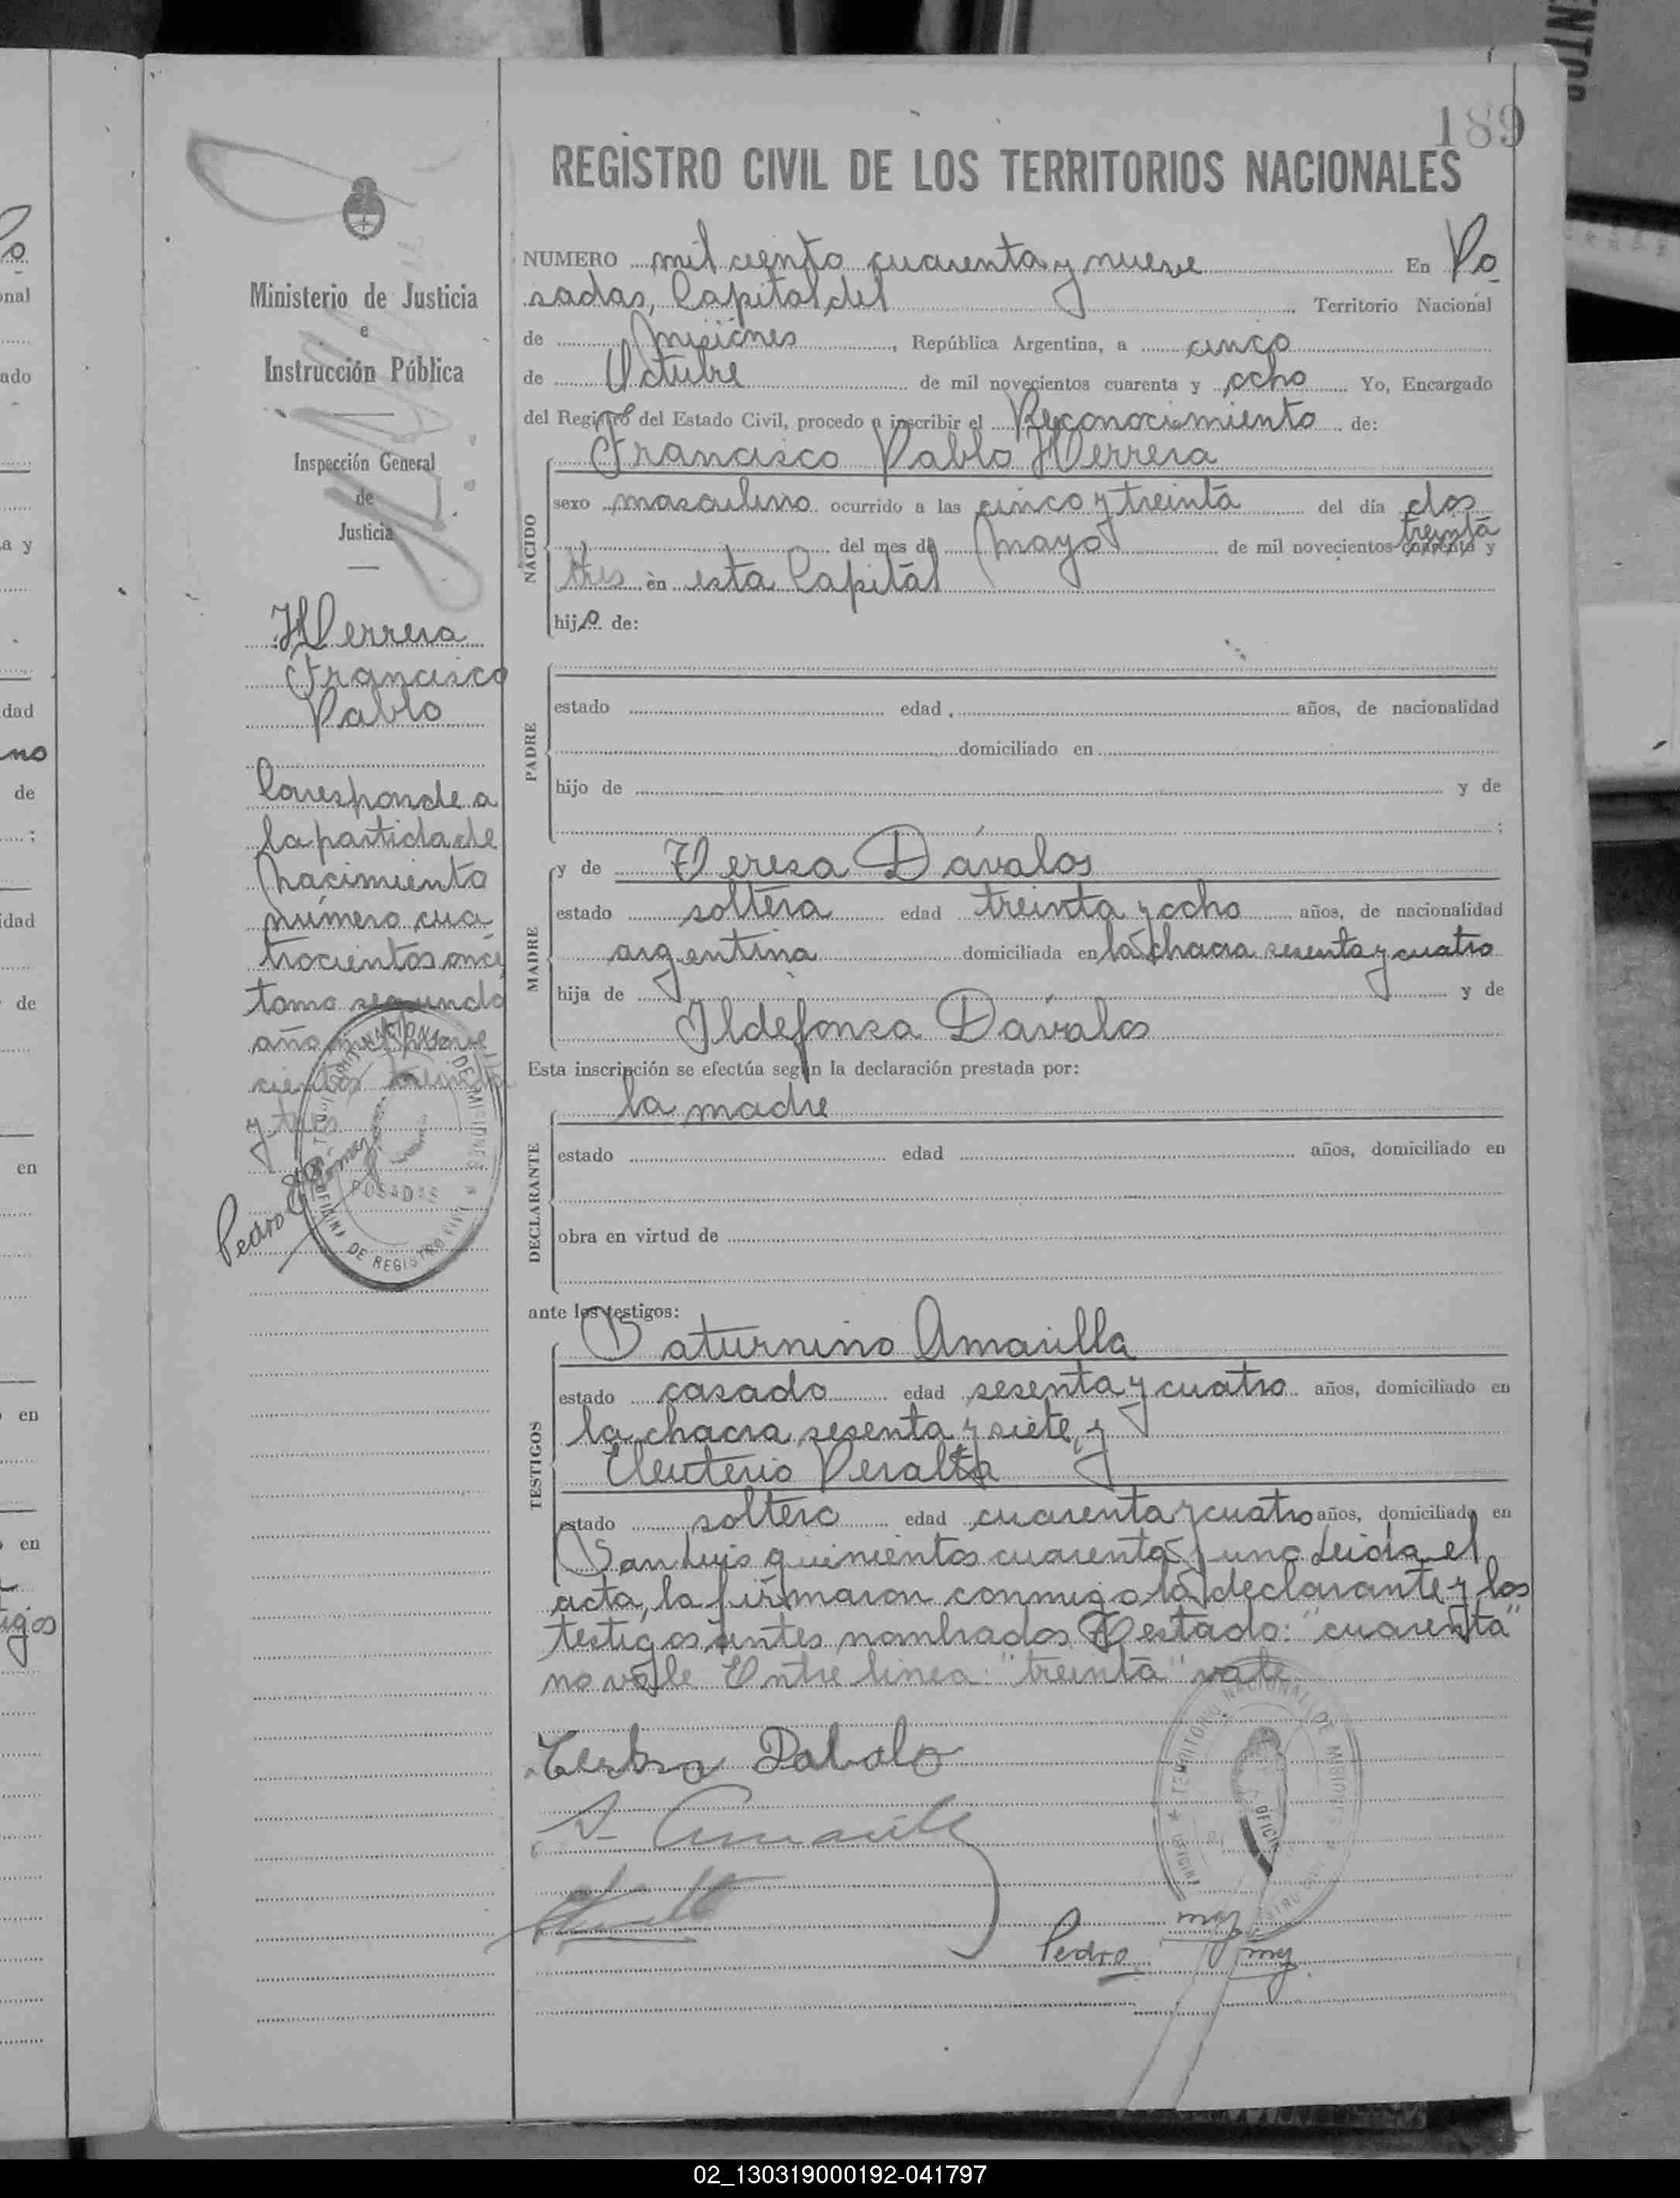 189
REGISTRO CIVIL DE LOS TERRITORIOS NACIONALES
Ministerio de Justicia
e
Instrucción Pública
Inspección General
de
Justicia
Herrera
Francisco
Pablo
Corresponde a
la partida de
nacimiento
número cua
trocientos once
tomo segundo
año mil nove
cientos treinta
y tres
Pedro Gómez
TERRITORIO NACIONAL DE MISIONES
POSADAS
OFICINA DE REGISTRO CIVIL
NUMERO mil ciento cuarenta y nueve En Po
sadas, Capital del Territorio Nacional
de Misiones, República Argentina, a cinco
de Octubre de mil novecientos cuarenta y ocho Yo, Encargado
del Registro del Estado Civil, procedo a inscribir el Reconocimiento de:
Francisco Pablo Herrera
NACIDO
sexo masculino ocurrido a las cinco y treinta del día dos
treinta
del mes de mayo de mil novecientos cuarenta y
tres en esta Capital
hijo de:
PADRE
estado edad, años, de nacionalidad
domiciliado en
hijo de y de
;
y de Teresa Dávalos
MADRE
estado soltera edad treinta y ocho años, de nacionalidad
argentina domiciliada en la chacra sesenta y cuatro
hija de y de
Ildefonsa Dávalos
Esta inscripción se efectúa según la declaración prestada por:
la madre
DECLARANTE
estado edad años, domiciliado en
obra en virtud de
ante los testigos:
Saturnino Amarilla
TESTIGOS
estado casado edad sesenta y cuatro años, domiciliado en
la chacra sesenta y siete, y
Eleuterio Peralta
estado soltero edad cuarenta y cuatro años, domiciliado en
San Luis quinientos cuarenta y uno Leida el
acta, la firmaron conmigo la declarante y los
testigos antes nombrados Testado: "cuarenta"
no vale Entre linea: "treinta" vale
TERRITORIO NACIONAL DE MISIONES
Pedro
02_130319000192-041797